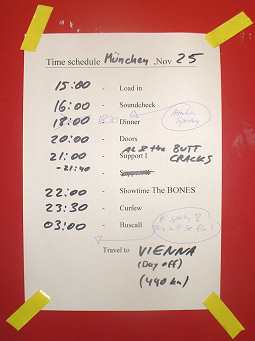 Time schedule München, Nov 25
15:00 - Load in
16:00 - Soundcheck
18:00 - Dinner
20:00 - Doors
21:00 - Support I AL & the BUTT CRACKS
-21:40 -
22:00 - Showtime The BONES
23:30 - Curfew
03:00 - Buscall
Travel to VIENNA
(Day off)
(440 km)